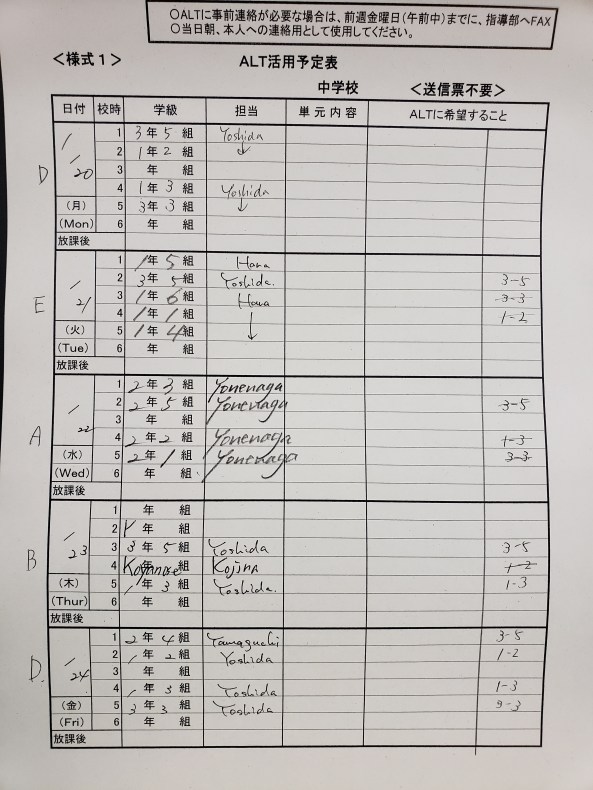 ○ALTに事前連絡が必要な場合は、前週金曜日(午前中)までに、指導部へFAX
○当日朝、本人への連絡用として使用してください。
<様式1> ALT活用予定表
中学校 <送信票不要>
日付 校時 学級 担当 単元内容 ALTに希望すること
1 3年5組 Yoshida
2 1年2組 ↓
D 1/20 3 年 組
4 1年3組 Yoshida
(月) 5 3年3組 ↓
(Mon) 6 年 組
放課後
1 1年5組 Hara
2 3年5組 Yoshida. 3-5
E 1/21 3 1年6組 Hara 3-3
4 1年1組 1-2
(火) 5 1年4組 ↓
(Tue) 6 年 組
放課後
1 2年3組 Yonenaga
2 2年5組 Yonenaga 3-5
A 1/22 3 年 組
4 2年2組 Yonenaga 1-3
(水) 5 2年1組 Yonenaga 3-3
(Wed) 6 年 組
放課後
1 年 組
2 年 組
B 1/23 3 3年5組 Yoshida 3-5
4 年 組 Kojina 1-2
(木) 5 1年3組 Yoshida. 1-3
(Thur) 6 年 組
放課後
1 2年4組 Yamaguchi 3-5
2 1年2組 Yoshida 1-2
D. 1/24 3 年 組
4 1年3組 Yoshida 1-3
(金) 5 3年3組 Yoshida 3-3
(Fri) 6 年 組
放課後